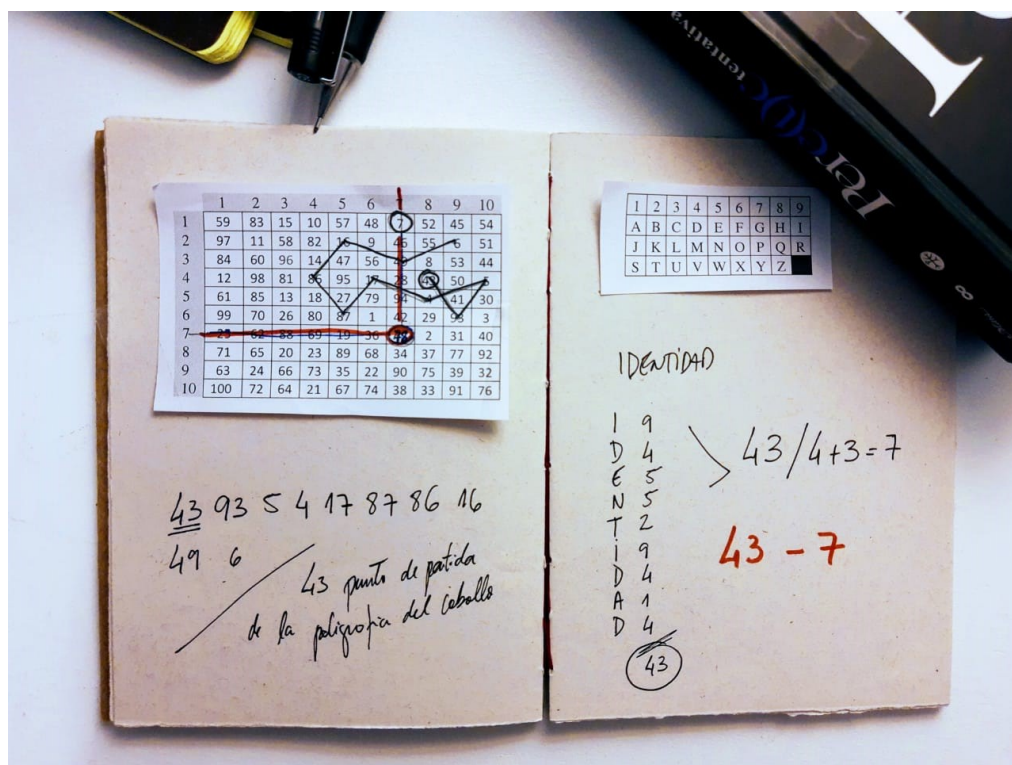 1 2 3 4 5 6 8 9 10
1 59 83 15 10 57 48 7 52 45 54
2 97 11 58 82 16 9 46 55 6 51
3 84 60 96 14 47 56 49 8 53 44
4 12 98 81 86 95 17 28 43 50 5
5 61 85 13 18 27 79 94 4 41 30
6 99 70 26 80 87 1 42 29 93 3
7 25 62 88 69 19 36 2 31 40
8 71 65 20 23 89 68 34 37 77 92
9 63 24 66 73 35 22 90 75 39 32
10 100 72 64 21 67 74 38 33 91 76
43 93 5 4 17 87 86 16
49 6
43 punto de partida
de la poligrafia del caballo
1 2 3 4 5 6 7 8 9
A B C D E F G H I
J K L M N O P Q R
S T U V W X Y Z
IDENTIDAD
I 9
D 4
E 5
N 5
T 2
I 9
D 4
A 1
D 4
43
43/4+3=7
43-7
tentativa
8